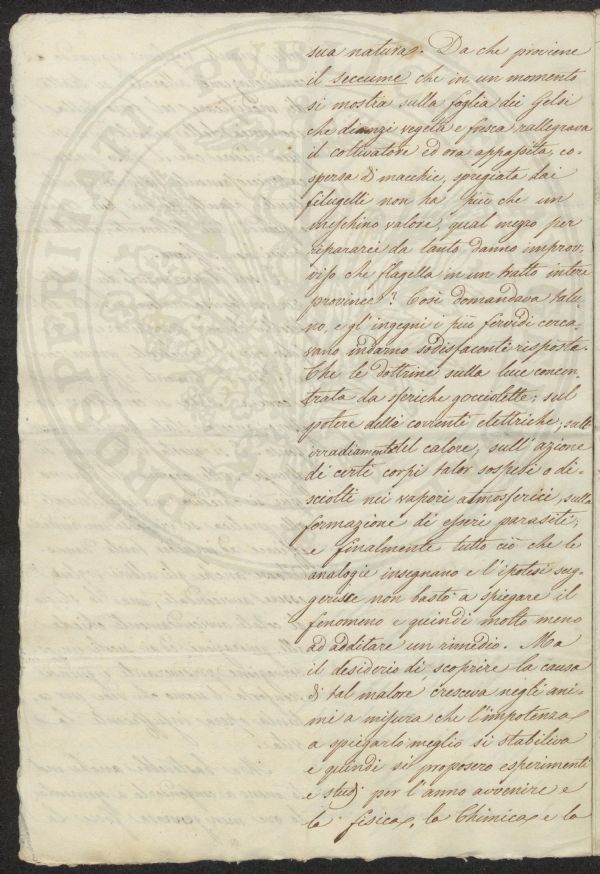 sua natura. Da che proviene
il seccume che in un momento
si mostra sulla foglia dei Gelsi
che dianzi vegeta e fresca rallegrava
il coltivatore ed ora appassita, co-
spersa di macchie, spregiata dai
filugelli non ha più che un
meschino valore, qual mezzo per
ripararci da tanto danno improv-
viso che flagella in un tratto intere
province? Così domandava talu-
no, e gl'ingegni i più fervidi cerca-
vano indarno sodisfacente risposta.
Chè le dottrine sulla luce concen-
trata da sferiche gocciolette, sul
potere delle correnti elettriche, sull'
irradiamento del calore, sull'azione
di certi corpi talor sospesi o di-
sciolti nei vapori atmosferici, sulla
formazione di esseri parasiti,
e finalmente tutto ciò che le
analogie insegnano e l'ipotesi sug-
gerisce non bastò a spiegare il
fenomeno e quindi molto meno
ad additare un rimedio. Ma
il desiderio di scoprire la causa
di tal malore cresceva negli ani-
mi a misura che l'impotenza
a spiegarlo meglio si stabiliva
e quindi si proposero esperimenti
e studj per l'anno avvenire e
la fisica, la Chimica e la